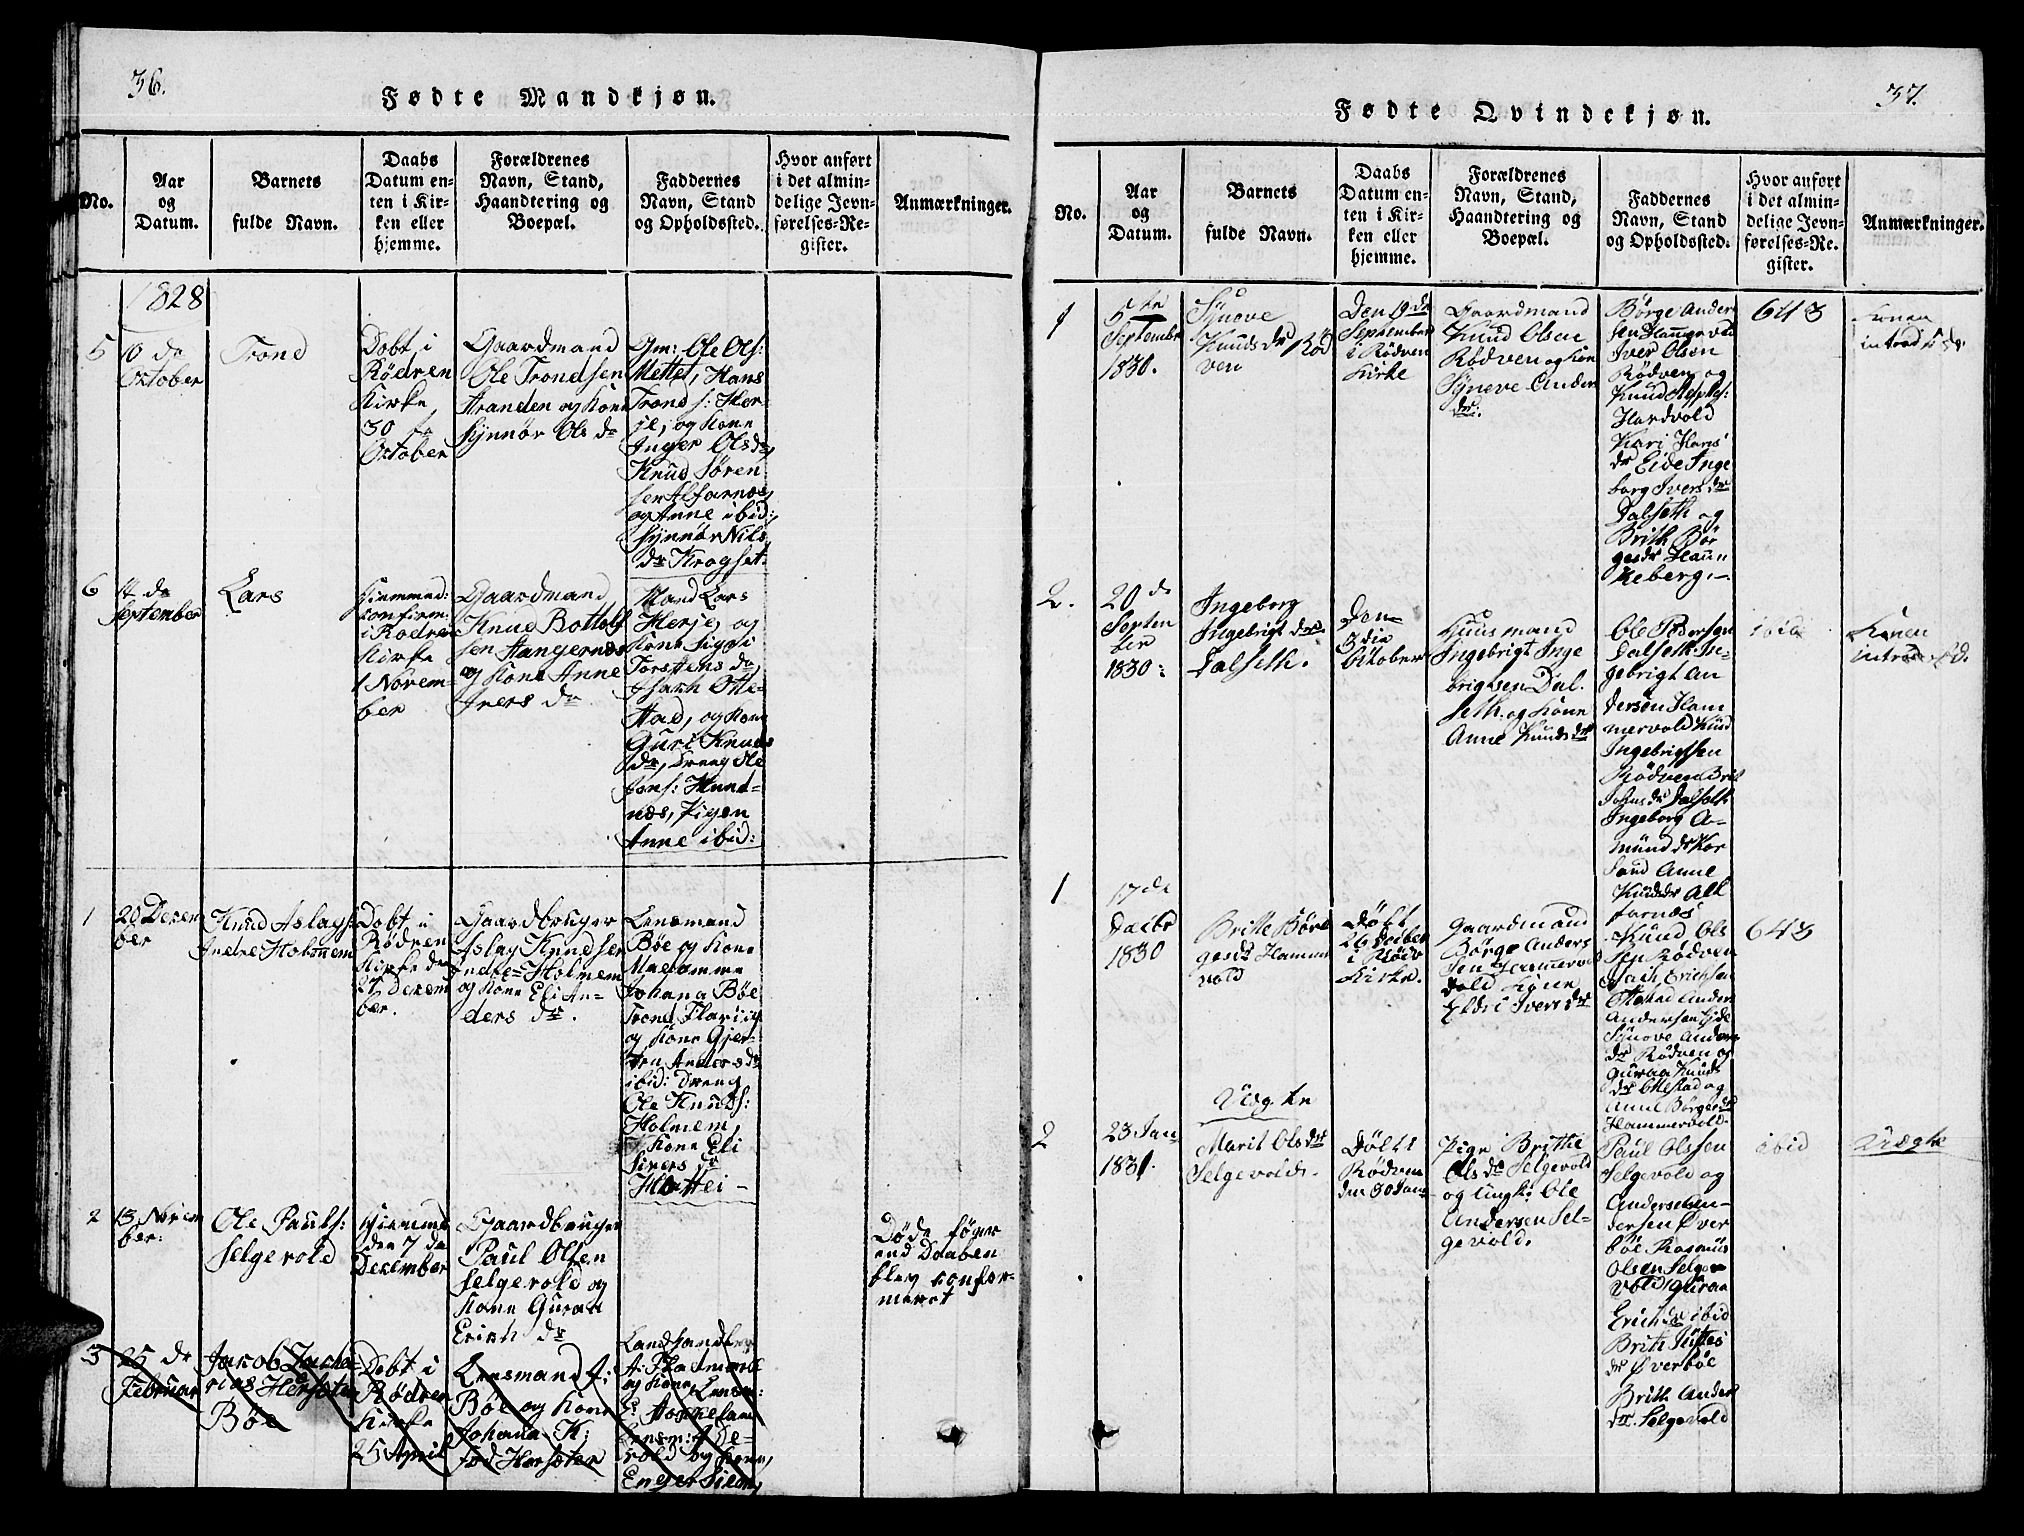 36.
Fødte Mandkjøn.
No.
Aar
og
Datum.
Barnets
fulde Navn.
Daabs
Datum en-
ten i Kir-
ken eller
hjemme.
Forældrenes
Navn, Stand,
Haandtering og
Boepæl.
Faddernes
Navn, Stand
og Opholdssted.
Hvor anført
i det almin-
delige Jevn-
førelses-Re-
gister.
Anmærkninger.
1828
5
10 de
October
Trond
Døbt i
Rødven
Kirke
30 te
October
Gaardmand
Ole Trondsen
Stranden og Kone
Synnør Ols dr
Gm: Ole Ols:
Mettet, Hans
Trond s: Her-
je, og Kone
Inger Olsdr,
Knud Søren
sen Alfarnes,
og Anne ibid:
Synnør Nils
dr Krogset.
6
de
September
Lars
Hiemmed:
Confirm:
i Rødven
Kirke
1 Novem-
ber
Gaardmand
Knud Bottolf
sen Hangernes
og Kone Anne
Ivers dr
Mand Lars
Herje, og
Kone Sigri
Torstens dr,
Otte-
stad, og Kone
Guri Knuds
dr, Dreng Ole
Jons: Hund-
nes, Pigen
Anne ibid:
1
20 Decem
ber
Knud Aslags:
Indre Holmem
Døbt i
Rødven
Kirke den
27 Decem
ber.
Gaardbruger
Aslag Knudsen
Indre Holmem
og Kone Eli An-
ders dr.
Lensmand
Bøe og Kone
Madamme
Johana Bøe
Trond
og Kone Gjer-
tru Anders dr
ibid: Dreng
Ole Knuds:
Holmem,
Kone Eli
Sivers dr
Hattei -
2
13 Novem
ber:
Ole Pauls:
Selgevold
Hiemme
den 7 de
December
Gaardbruger
Paul Olsen
Selgevold og
Kone Guraa
Erich dr
Døde føren
end Daaben
blev confir-
meret
3
25 de
Februar
Jacob Zacha-
rias Hersæter
Bøe
Døbt i
Rødven
Kirke
25 April
Lensmand J:
Bøe og Kone
Johana K:
fød Hersæter
Landhandler
og Kone, Lensm:
Lensm: J De-
vold og Kone,
37.
Fødte Qvindekjøn.
No.
Aar
og
Datum.
Barnets
fulde Navn.
Daabs
Datum en-
ten i Kir-
ken eller
hjemme.
Forældrenes
Navn, Stand,
Haandtering og
Boepæl.
Faddernes
Navn, Stand
og Opholdssted.
Hvor anført
i det almin-
delige Jevn-
førelses-Re-
gister.
Anmærkninger.
1
5te
September
1830.
Synove
Knuds dr Rød
ven
Den 19 de
September
i Rødven
Kirke
Gaardmand
Knud Olsen
Rødven og Kone
Syneve Anders
dr.
Børge Anders
sen Hammervold
Iver Olsen
Rødven og
Knud
Hardvold
Kari Hans
dr Eide Inge
borg Ivers dr
Dalseth og
Brith Bør
ges dr Haun
keberg.-
648
Konen
introd
2.
20 de
Septem
ber
1830.
Ingeborg
Ingebrigt dr
Dalseth.
Den
3die
October
Huusmand
Ingebrigt Inge
brigtsen Dal
seth og Kone
Anne Knuds dr
Ole Pedersen
Dalseth In-
gebrigt An
dersen Ham
mervold Knud
Ingebrigtsen
Rødven Brit
Johns dr Dalseth
Ingeborg A-
mund dr Kor
sand Anne
Knuds dr Alf
farnæs
ibid
Konen
introd.
1
17 de
Decbr
1830
Britte Bør
gesdr Hammer
vold
Døbt
26 Decber
i Rødv
Kirke.
Gaardmand
Børge Anders
sen Hammer
vold Kone
Eldri Ivers dr
Knud Ols
sen Rødven
Erichsen
Ottestad Anders
Andersen Eide
Synove Anders
dr Rødven og
Guraa Knuds
dr Ottestad og
Anne Børges dr
Hammervold
648
Uægte
2
23 Jan
1831.
Marit Ols dr
Selgevold.
Døbt i
Rødven
den 30 Jan
Pige Brithe
Ols dr Selgevold
og Ungk: Ole
Andersen Sel-
gevold.
Paul Olssen
Selgevold og
Anders An-
dersen Øver
bøe Rasmus
Olsen Selge
vold Guraa
Erichdr ibid
Brith
dr Øverbøe
Brith Anders
dr. Selgevold
ibid
Uægte